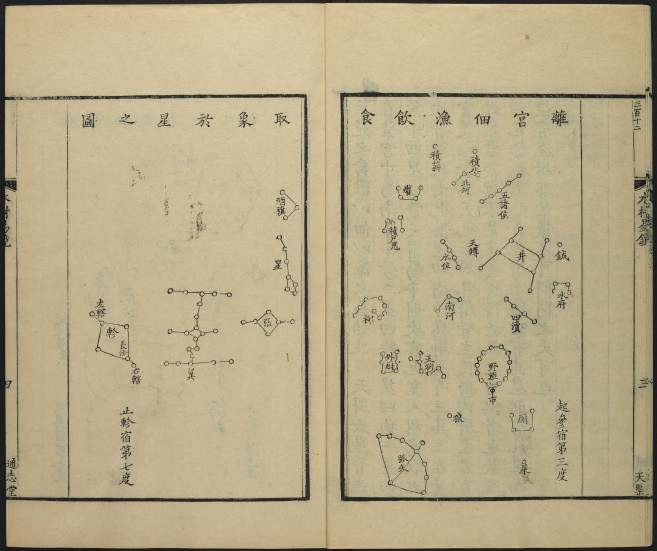 離宮佃漁飲食
取象於星之圖
起參宿第三度
止軫宿第七度
積薪
北河
五諸侯
爟
積尸
鬼
水位
天罇
井
鉞
水府
四瀆
南河
柳
外厨
天狗
野雞
軍市
狼
弧矢
酒旗
星
張
翼
左轄
軫
長沙
右轄
三百十二
三
四
通志堂